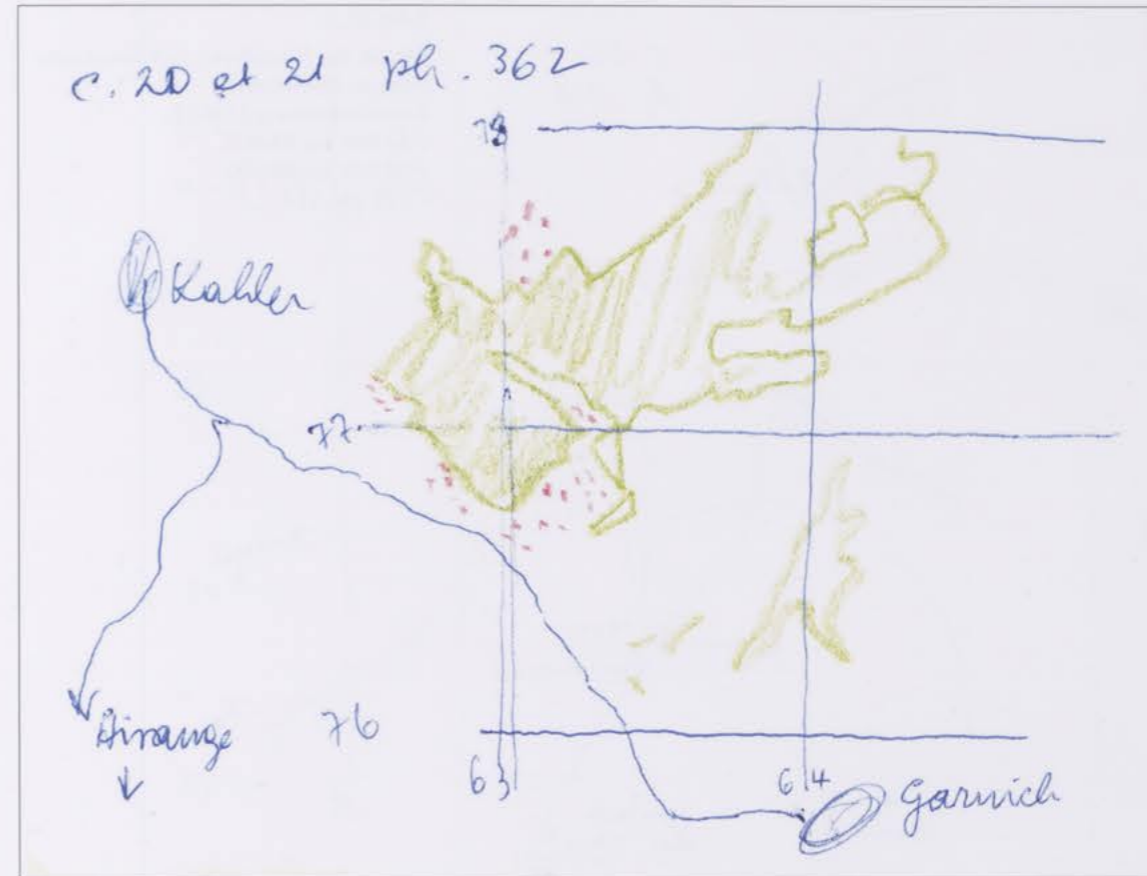 c. 20 et 21 ph. 362
78
Kahler
77
76
63
64
Garnich